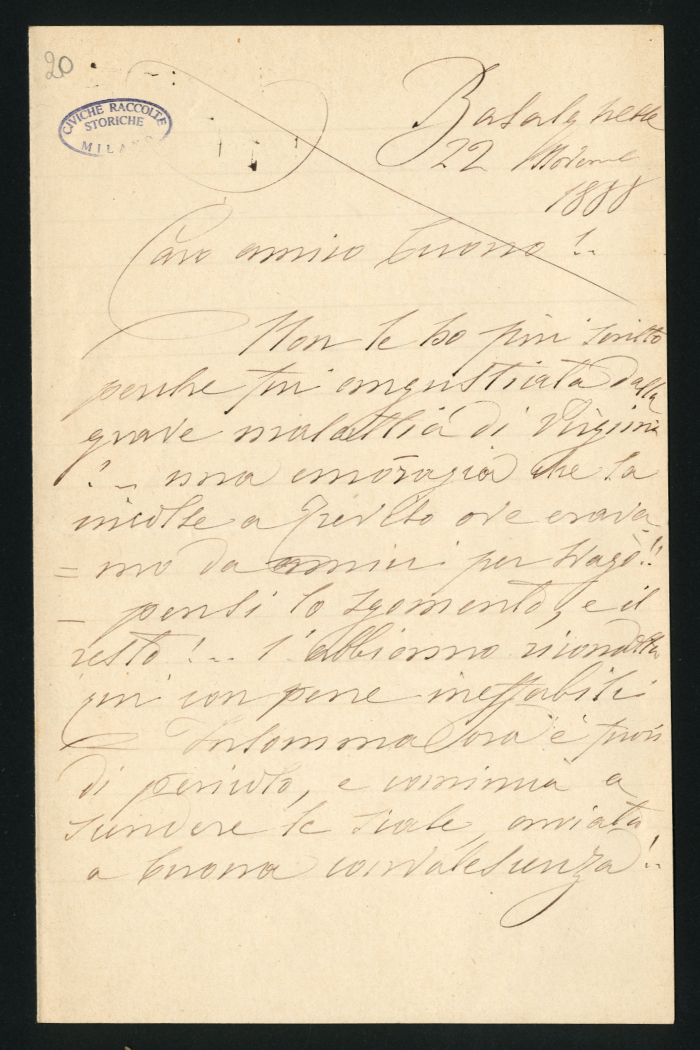 20
CIVICHE RACCOLTE
STORICHE
MILANO
Basalghelle
22
1888
Caro amico buono!..
Non le ho più scritto
perche fui angustiata dalla
grave malattia di Virginia
!.. una emoragia che la
incolse a ove erava
= mo da amici per svago!!
- pensi lo sgomento, e il
resto!.. l'abbiamo ricondotta
qui con pene ineffabili
Insomma ora è fuori
di pericolo, e comincia a
scendere le scale, avviata
a buona convalescenza!..